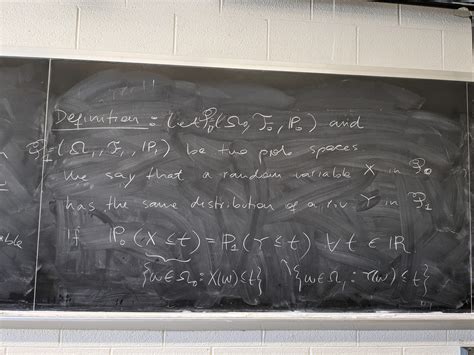 Definition : Let 𝒫₀(Ω₀, ℱ₀, ℙ₀) and
𝒫₁=(Ω₁, ℱ₁, ℙ₁) be two prob spaces
We say that a random variable X in 𝒫₀
has the same distribution of a r.v Y in 𝒫₁
if ℙ₀(X ≤ t) = ℙ₁(Y ≤ t) ∀ t ∈ ℝ
{ω ∈ Ω₀ : X(ω) ≤ t} {ω ∈ Ω₁ : Y(ω) ≤ t}